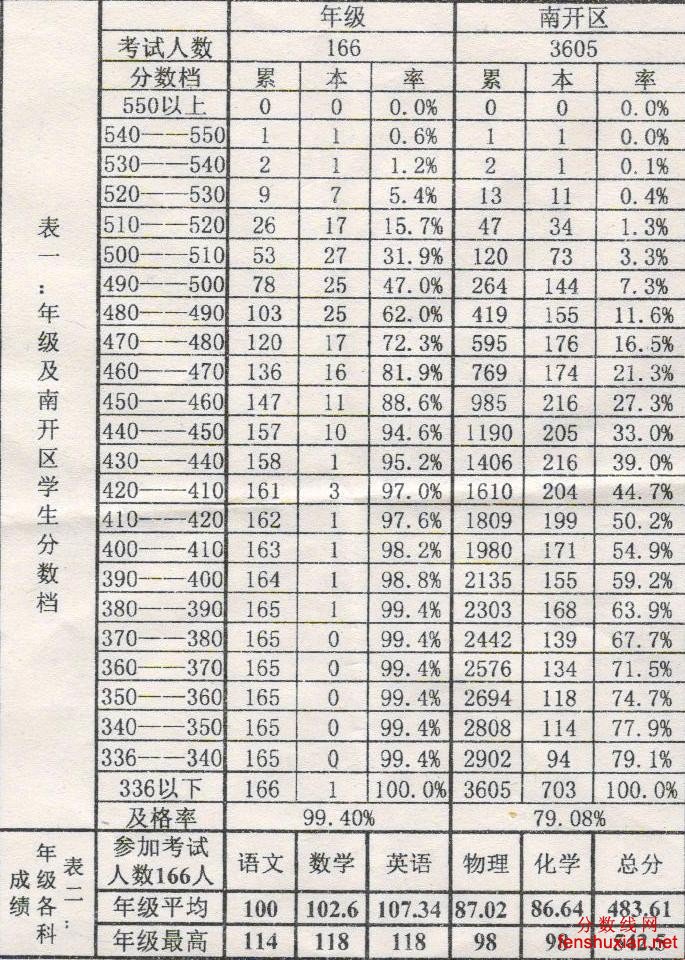 年级 南开区
考试人数 166 3605
分数档 累 本 率 累 本 率
550以上 0 0 0.0% 0 0 0.0%
540——550 1 1 0.6% 1 1 0.0%
530——540 2 1 1.2% 2 1 0.1%
520——530 9 7 5.4% 13 11 0.4%
510——520 26 17 15.7% 47 34 1.3%
500——510 53 27 31.9% 120 73 3.3%
490——500 78 25 47.0% 264 144 7.3%
480——490 103 25 62.0% 419 155 11.6%
470——480 120 17 72.3% 595 176 16.5%
460——470 136 16 81.9% 769 174 21.3%
450——460 147 11 88.6% 985 216 27.3%
440——450 157 10 94.6% 1190 205 33.0%
430——440 158 1 95.2% 1406 216 39.0%
420——410 161 3 97.0% 1610 204 44.7%
410——420 162 1 97.6% 1809 199 50.2%
400——410 163 1 98.2% 1980 171 54.9%
390——400 164 1 98.8% 2135 155 59.2%
380——390 165 1 99.4% 2303 168 63.9%
370——380 165 0 99.4% 2442 139 67.7%
360——370 165 0 99.4% 2576 134 71.5%
350——360 165 0 99.4% 2694 118 74.7%
340——350 165 0 99.4% 2808 114 77.9%
336——340 165 0 99.4% 2902 94 79.1%
336以下 166 1 100.0% 3605 703 100.0%
及格率 99.40% 79.08%
表一：年级及南开区学生分数档
表二：
年级各科
成绩
参加考试
人数166人 语文 数学 英语 物理 化学 总分
年级平均 100 102.6 107.34 87.02 86.64 483.61
年级最高 114 118 118 98 542.5
分数线网
fenshuxian.net